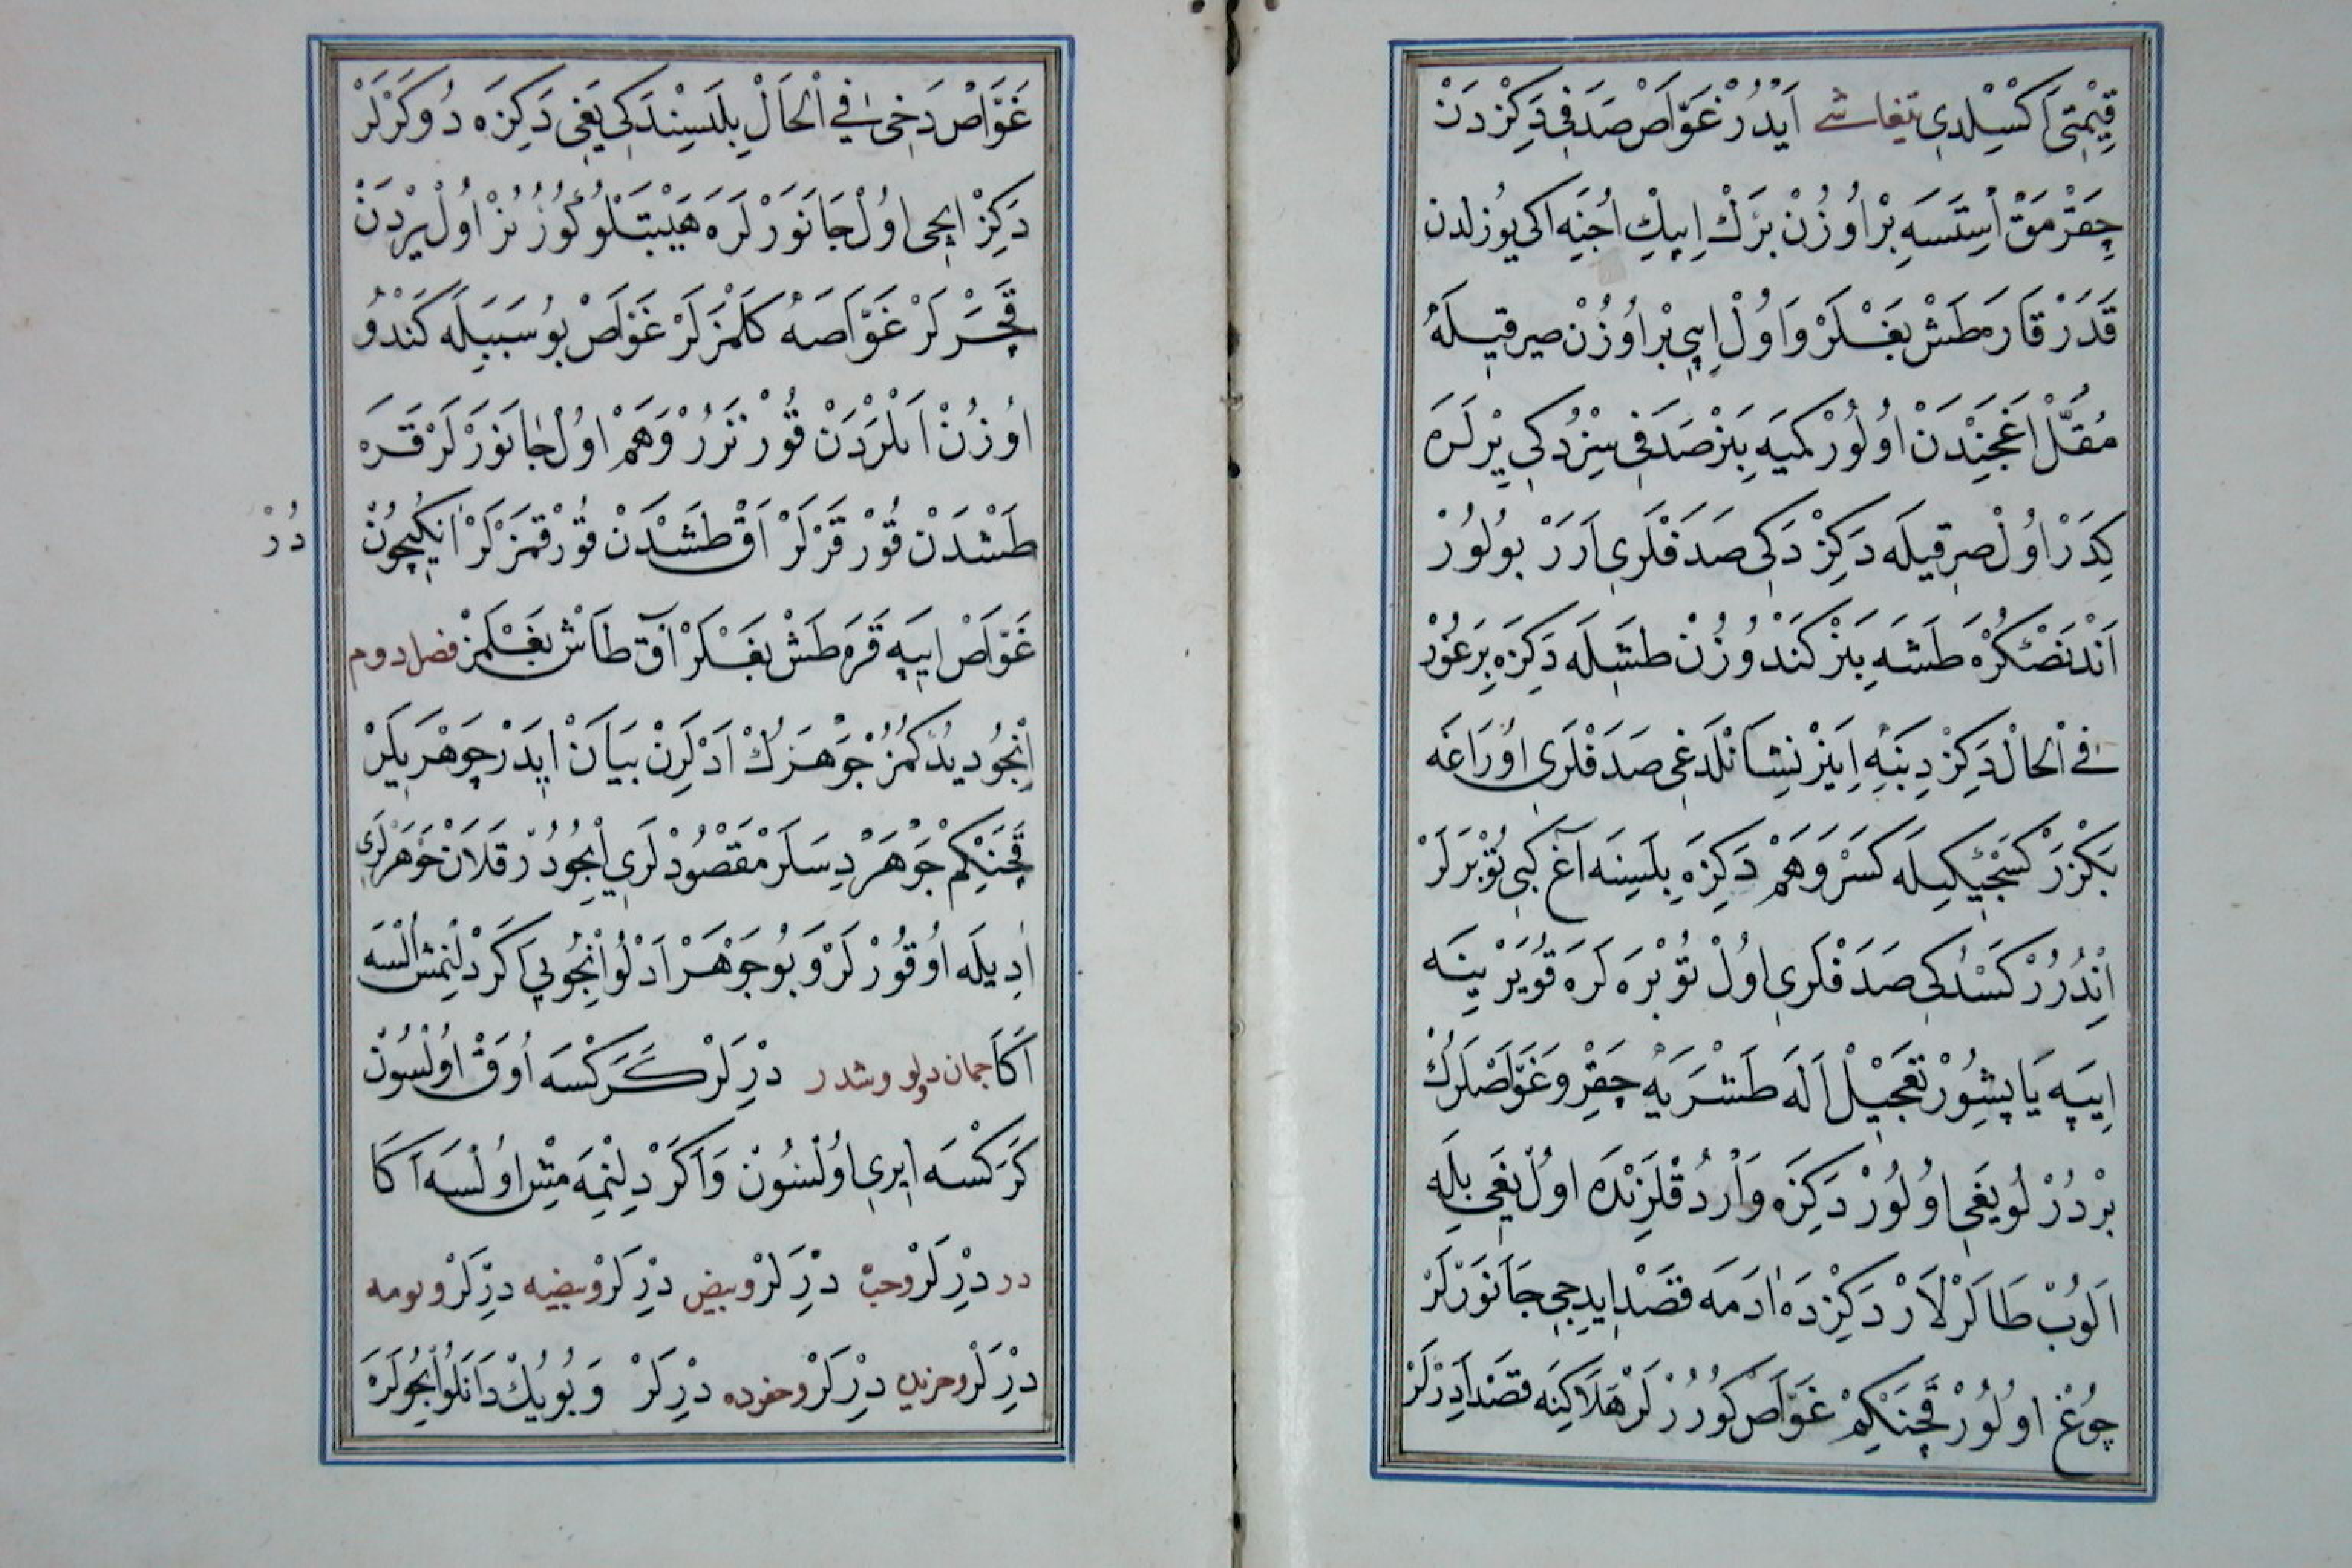 قِيْمَتِى اَكْسِلدِى تیفاشے اَيْدُرْ غَوَّاصْ صَدَفِى دَكِزْدَنْ
چِقَرْمَقْ اِسْتَسَه بِرْ اُوزُنْ بَرْكْ اِيپِكْ اُجِنَه اكى يُوز لدن
قَدَرْ قَارَه طَشْ بَغْلَرْ وَاُولْ اِيپِى بِرْ اُوزُنْ صيرقيلَه
مُقَلْ اَغَجِنْدَنْ اُولُورْ كَمِيَه بِنَرْ صَدَفِى سِزْدُكِى يِرْلَرَه
كِدَرْ اُولْ صِرِقيلَه دَكِزْدَكِى صَدَفْلَرِى اَرَرْ بُولُورْ
اَنْدَنْصُكْرَه طَشَه بِنَرْ كَنْدُوزُنْ طَشِلَه دَكِزَه بِرَغُوْر
فِى اْلحَالْ دَكِزْ دِبِنَه اِينَرْ نِشَانْلَدِغِى صَدَفْلَرِى اُورَاغَه
بَكْزَرْ كَسَجَيْكِيلَه كَسَرْ وَهَمْ دَكِزَه بِلَسِنَه اَغْ كِبِى تُوْبَرَلَرْ
اِنْدُرُرْ كَسْدُكِى صَدَفْلَرِى اُولْ تُوْبْرَه لَرَه قُويَرْ يِنَه
اِيپَه يَاپِشُورْ تَعْجِيلْ اَلَه طَشْرَيَه چِقَرْ وَغَوَّاصْلَرُكْ
بِرْ دُرْلُو يَغِى اُولُورْ دَكِزَه وَاَرْدُقْلَرِنْدَه اُولْ يَغِى بِلَه
اَلُوبْ طَالَرْلَرْ دَكِزْدَه اَدَمَه قَصْد اِيدِجِى جَانَوَرْلَرْ
چُوغْ اُولُورْ قَچَنْكِمْ غَوَّاصْ كُورُرْلَرْ هَلَاكِنَه قَصْد اَدَرْلَرْ
غَوَّاصْ دَخِى فِى اْلحَالْ بِلَسِنْدَكِى يَغِى دَكِزَه دُوكَرْلَرْ
دَكِزْ اِيچِى اُولْ جَانَوَرْلَرَه هَيْبَتْلُو كُوزُنُرْ اُولْ يِرْدَنْ
قَچَرْلَرْ غَوَّاصَه كَلْمَزْلَرْ غَوَّاصْ بُو سَبَبِلَه كَنْدُو
اُوزُنْ اَنْلَرْدَنْ قُورْتَرُرْ وَهَمْ اُولْ جَانَوَرْلَرْ قَرَه
طَشْدَنْ قُورْقَرْلَرْ اَقْ طَشْدَنْ قُورْقمَزْلَرْ اَنِكِيچُونْ
دُرْ
غَوَّاصْ اِيپَه قَرَه طَشْ بَغْلَرْ اَقْ طَاشْ بَغْلَمَزْ فصل دوم
اِنْجُو دِيدُكمُزْ جَوْهَرُكْ اَدْلَرِنْ بَيَانْ اِيدَرْ جَوْهَرِيلَرْ
قَچَنْكِمْ جَوْهَرْ دِسَلَرْ مَقْصُودْلَرِى اِنْجُودُرْ قَلَانْ جَوْهَرْلَرِى
اَدِيلَه اُوقُورْلَرْ وَبُو جَوْهَرْ اَدْلُو اِنْجُويِى اَكَرْ دَلِنْمِشْ اُلْسَه
اَكَا جمان دلو وشدر دِرْلَرْ كَرَكْسَه اُوَقْ اُولْسُونْ
كَرَكْسَه اِيرِى اُولْسُونْ وَاَكَرْ دِلِنْمَمِشْ اُولْسَه اَكَا
در دِرْلَرْ وحب دِرْلَرْ وبيض دِرْلَرْ وبيضيه دِرْلَرْ وتومه
دِرْلَرْ وخريده دِرْلَرْ وخرده دِرْلَرْ وَبُويُكْ دَانَلُو اِنْجُولَرَه